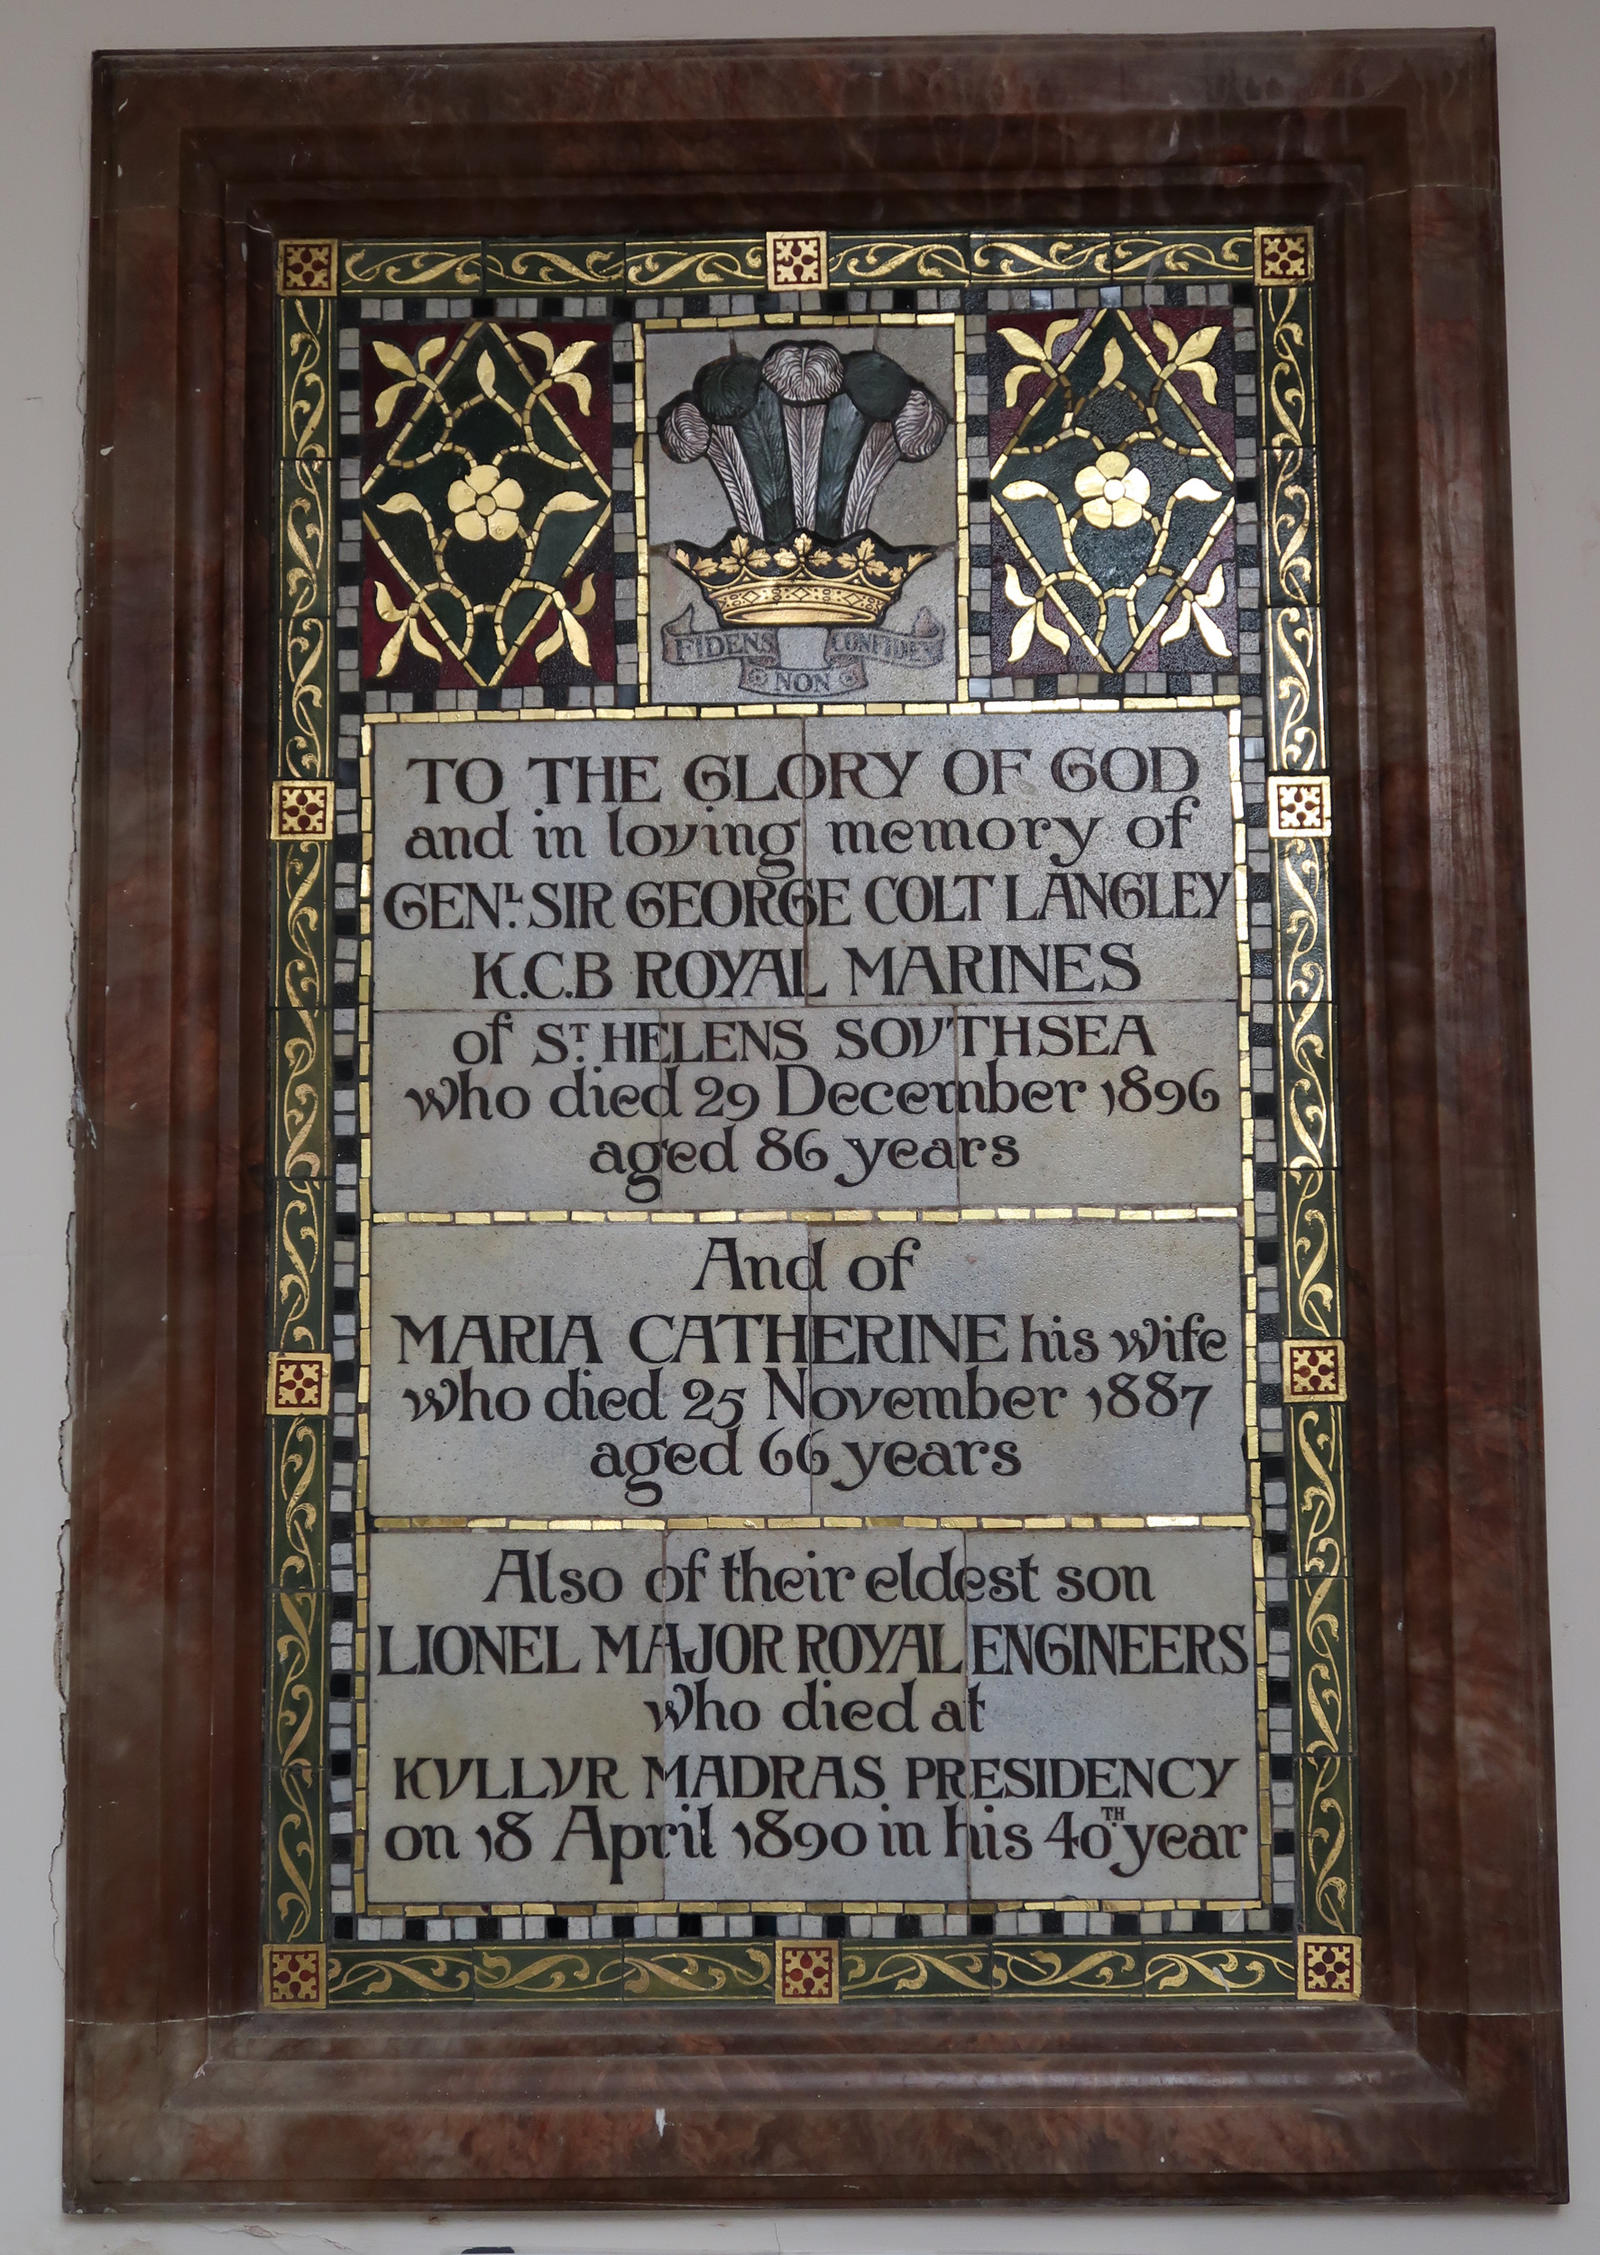 FIDENS NON CONFIDEN
TO THE GLORY OF GOD
and in loving memory of
GENL. SIR GEORGE COLT LANGLEY
K.C.B ROYAL MARINES
of ST. HELENS SOVTHSEA
who died 29 December 1896
aged 86 years
And of
MARIA CATHERINE his wife
who died 25 November 1887
aged 66 years
Also of their eldest son
LIONEL MAJOR ROYAL ENGINEERS
who died at
KVLLVR MADRAS PRESIDENCY
on 18 April 1890 in his 40TH year